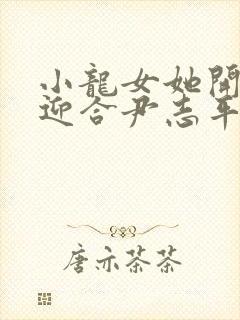 小龍女她開
迎合尹志平
唐亦茶茶